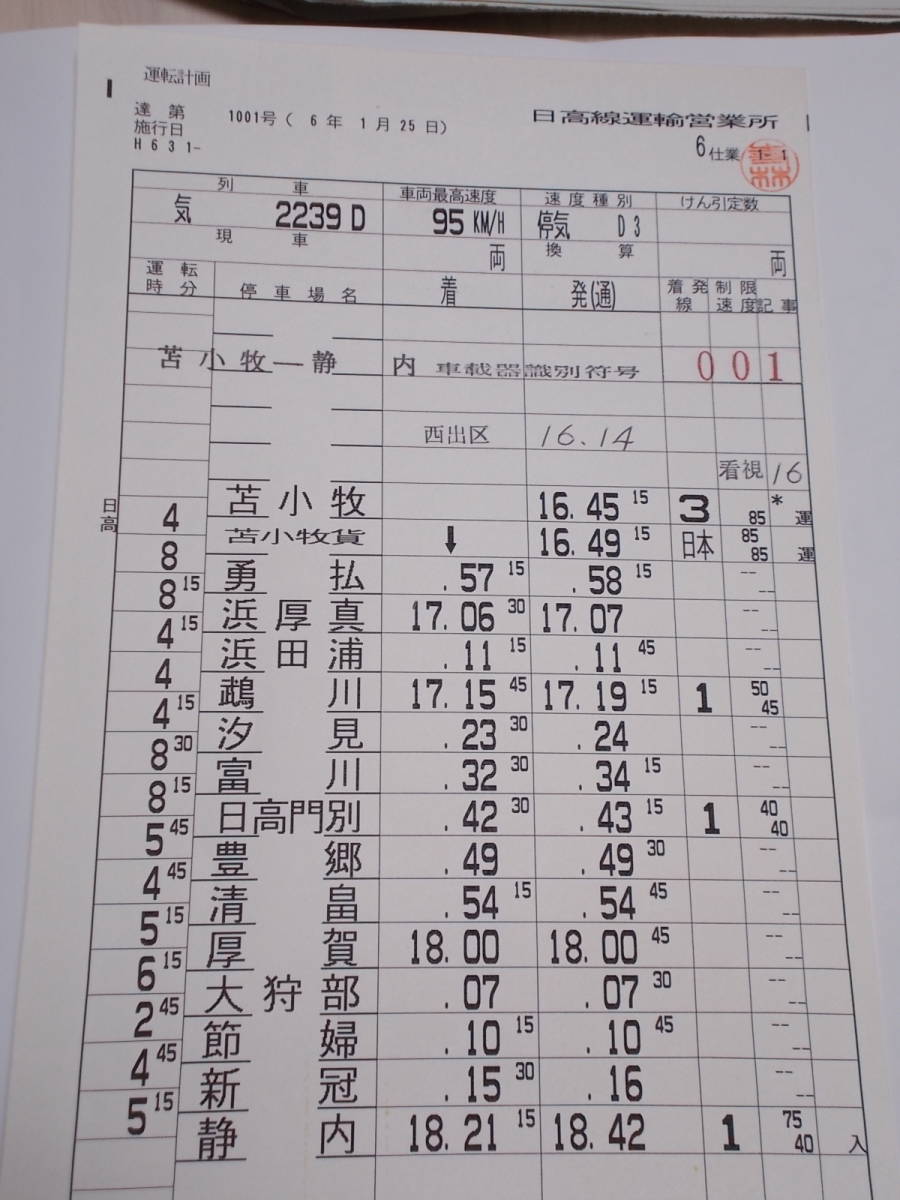 運転計画
達 第 1001号( 6 年 1 月 25 日)
施行日
H 6 3 1-
日高線運輸営業所
6 仕業 1-1
列 車 車両最高速度 速度種別 けん引定数
気 2239 D 95 KM/H 停気 D 3
現 車 両 換 算 両
運 転 時 分 停 車 場 名 着 発(通) 着発線 制限速度 記事
苫 小 牧 — 静 内 車載器識別符号 001
西出区 16.14
看視 16
日高
苫小牧 16.45 15 3 85 * 運
4
苫小牧貨 ↓ 16.49 15 日本 85 85 運
8
勇払 .57 15 .58 15 -- --
8 15
浜厚真 17.06 30 17.07 -- --
4 15
浜田浦 .11 15 .11 45 -- --
4
鵡川 17.15 45 17.19 15 1 50 45
4 15
汐見 .23 30 .24 -- --
8 30
富川 .32 30 .34 15 -- --
8 15
日高門別 .42 30 .43 15 1 40 40
5 45
豊郷 .49 .49 30 -- --
4 45
清畠 .54 15 .54 45 -- --
5 15
厚賀 18.00 18.00 45 -- --
6 15
大狩部 .07 .07 30 -- --
2 45
節婦 .10 15 .10 45 -- --
4 45
新冠 .15 30 .16 -- --
5 15
静内 18.21 15 18.42 1 75 40 入